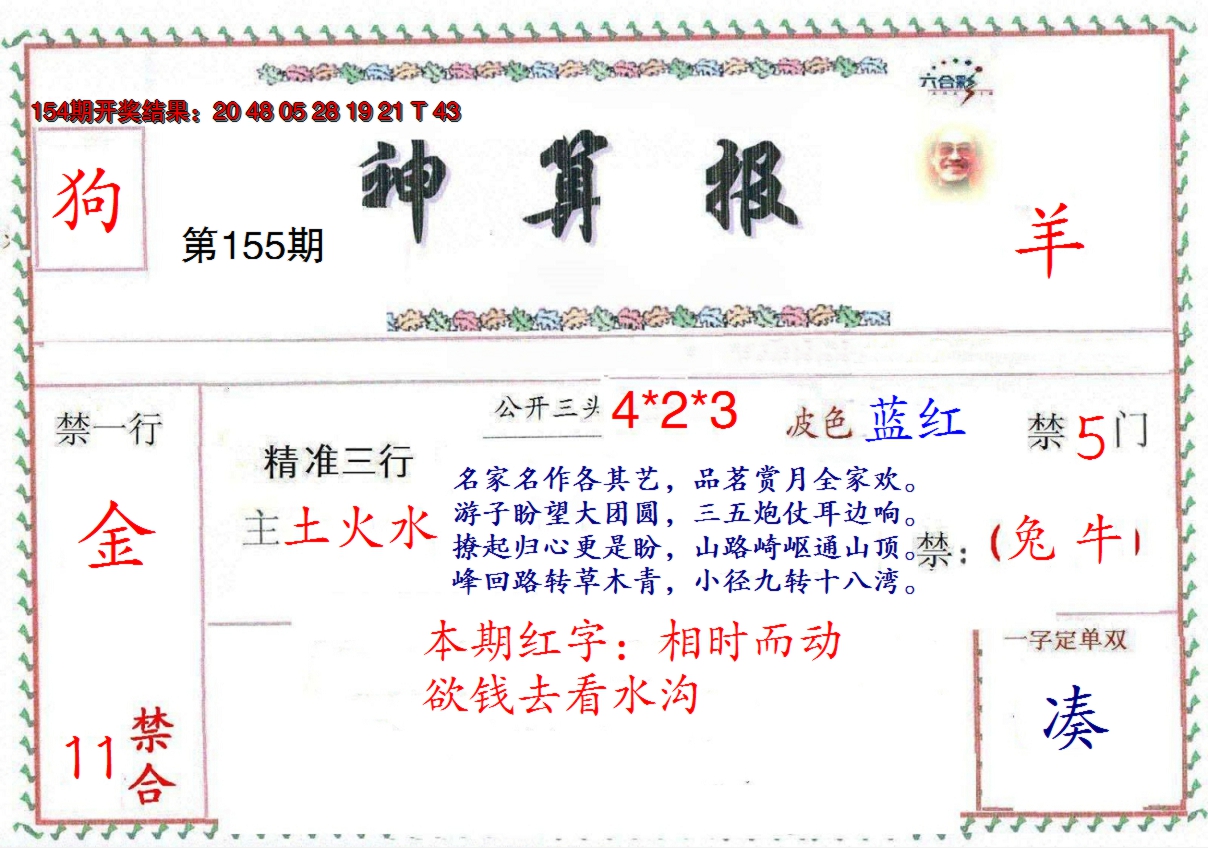 六合彩
154期开奖结果：20 48 05 28 19 21 T 43
狗
第155期
神算报
羊
禁一行
金
11
禁合
精准三行
主土火水
公开三头
4*2*3
波色 蓝红
禁5门
名家名作各其艺，品茗赏月全家欢。
游子盼望大团圆，三五炮仗耳边响。
撩起归心更是盼，山路崎岖通山顶。
峰回路转草木青，小径九转十八湾。
禁：（兔 牛）
本期红字：相时而动
欲钱去看水沟
一字定单双
凑